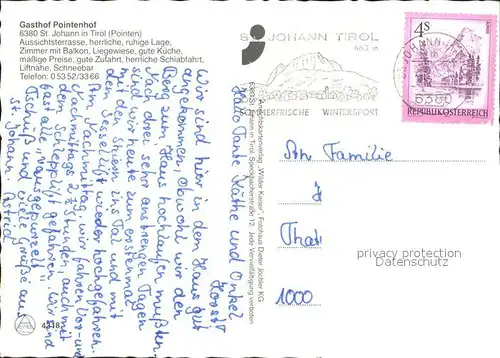 Gasthof Pointenhof
6380 St. Johann in Tirol (Pointen)
Aussichtsterrasse, herrliche, ruhige Lage,
Zimmer mit Balkon, Liegewiese, gute Küche,
mäßige Preise, gute Zufahrt, herrliche Schiabfahrt,
Liftnähe, Schneebar
Telefon: 0 53 52/33 66
Hallo Tante Käthe und Onkel
Horst!
Wir sind hier in dem Haus gut
angekommen, obwohl wir den
Berg zum Haus hochlaufen mußten.
Nach drei sehr anstrengen Tagen
sind wir heute zum erstenmal
mit den Skiern ins Tal und mit
dem Sessellift wieder hochgefahren.
Am Nachmittag, wir fahren Vor- und
Nachmittags 2½ Stunden, auch mit
dem Schlepplift gefahren. Wir sind
fast alle "rausgepurzelt".
Tschüß und viele Grüße aus
St. Johann. Astrid
Ansichtskartenverlag "Wilder Kaiser", Fotohaus Dieter Jöchler KG
6380 St. Johann in Tirol, Speckbacherstraße 12. Jede Vervielfältigung verboten
4318
ST. JOHANN TIROL
663 m
SOMMERFRISCHE WINTERSPORT
ST. JOHANN
6380
4S
REPUBLIK ÖSTERREICH
An Familie
That
1000
privacy protection
Datenschutz